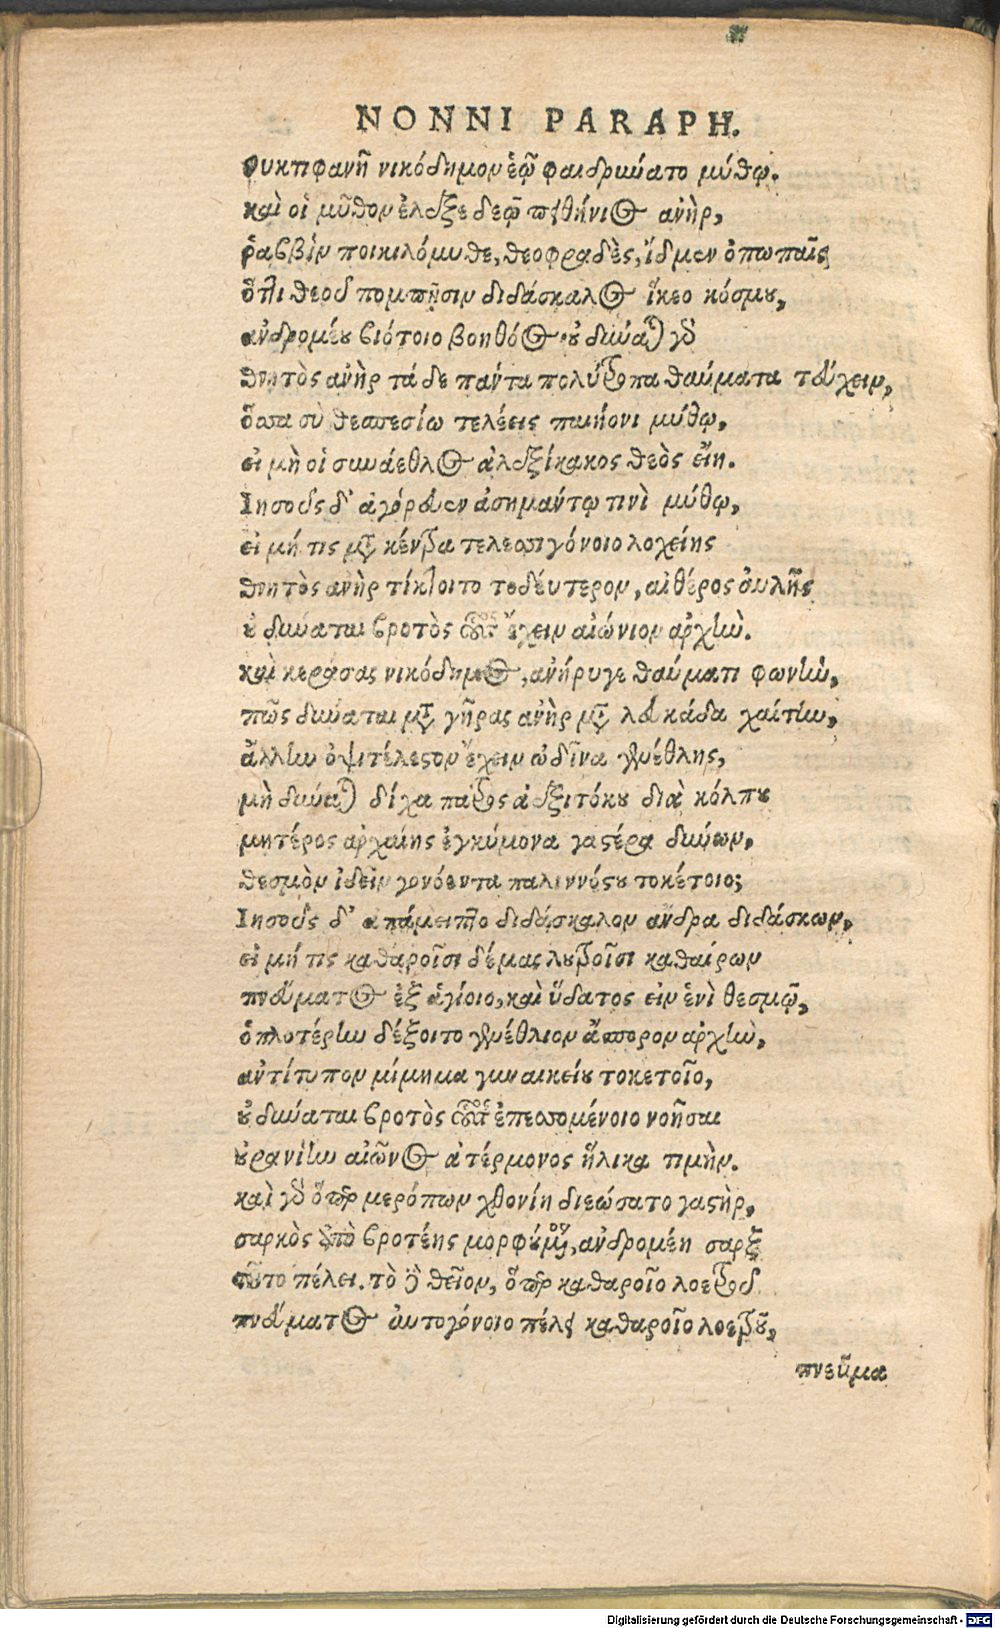 NONNI PARAPH.
νυκτιφανῆ νικόδημον ἑῷ φαιδρύνατο μύθῳ.
καὶ οἱ μῦθον ἔλεξε δεῷ πειθήνιος ἀνὴρ,
ῥαββὶν ποικιλόμυθε, θεοφραδὲς, ἴδμεν ὀπωπαῖς
ὅττι θεοῦ πομπῇσιν διδάσκαλος ἵκεο κόσμου,
ἀνδρομέου βιότοιο βοηθόος· οὐ δύναται γὰρ
θνητὸς ἀνὴρ τάδε πάντα πολύτροπα θαύματα τεύχειν,
ὅσσα σὺ θεσπεσίω τελέεις παιήονι μύθῳ,
εἰ μὴ οἱ συνάεθλος ἀλεξίκακος θεὸς εἴη.
Ιησοῦς δ' ἀγόρευεν ἀσημάντῳ τινὶ μύθῳ,
εἰ μή τις μετὰ κέντρα τελεσσιγόνοιο λοχείης
θνητὸς ἀνὴρ τίκτοιτο τοδεύτερον, αἰθέρος αὐλῆς
οὐ δύναται βροτὸς οὗτος ἔχειν αἰώνιον ἀρχήν.
καὶ κεράσας νικόδημος, ἀνήρυγε θαύματι φωνήν,
πῶς δύναται μετὰ γῆρας ἀνὴρ μετὰ λευκάδα χαίτην,
ἄλλην ὀψιτέλεστον ἔχειν ὠδῖνα γενέθλης,
μὴ δύναται δίχα πατρὸς ἀεξιτόκου διὰ κόλπου
μητέρος ἀρχαίης ἐγκύμονα γαστέρα δύνων,
θεσμὸν ἰδεῖν γονόεντα παλιννόστου τοκέτοιο;
Ιησοῦς δ' ἀπάμειπτο διδάσκαλον ἄνδρα διδάσκων,
εἰ μή τις καθαροῖσι δέμας λουτροῖσι καθαίρων
πνεύματος ἐξ ἁγίοιο, καὶ ὕδατος εἰν ἑνὶ θεσμῷ,
ὁπλοτέρην δέξοιτο γενέθλιον ἄσπορον ἀρχήν,
ἀντίτυπον μίμημα γυναικείου τοκετοῖο,
οὐ δύναται βροτὸς οὗτος ἐπεσσομένοιο νοῆσαι
οὐρανίην αἰῶνος ἀτέρμονος ἥλικα τιμὴν.
καὶ γὰρ ὅπερ μερόπων χθονίη διεώσατο γαστὴρ,
σαρκὸς ἀπὸ βροτέης μορφούμενον, ἀνδρομέη σαρξ
τοῦτο πέλει. τὸ δὲ θεῖον, ὅπερ καθαροῖο λοετροῦ
πνεύματος αὐτογόνοιο πέλει καθαροῖο λοετροῦ,
πνεῦμα
Digitalisierung gefördert durch die Deutsche Forschungsgemeinschaft - DFG